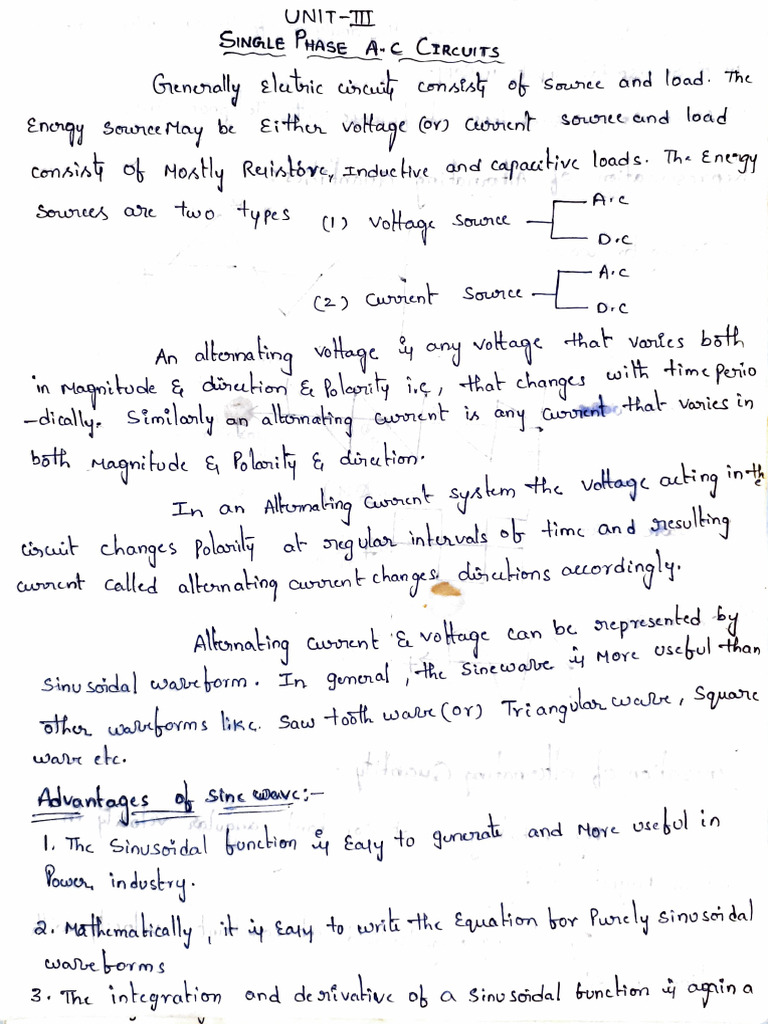 UNIT-III
SINGLE PHASE A.C CIRCUITS
Generally Electric circuit consists of source and load. The
Energy source May be Either voltage (or) current source and load
consists of Mostly Resistive, Inductive and capacitive loads. The Energy
sources are two types (1) Voltage source A.C
D.C
(2) Current Source A.C
D.C
An alternating voltage is any voltage that varies both
in Magnitude & direction & Polarity i.e, that changes with time perio
-dically. Similarly an alternating current is any current that varies in
both Magnitude & Polarity & direction.
In an Alternating current system the voltage acting in the
circuit changes Polarity at regular intervals of time and resulting
current called alternating current changes directions accordingly.
Alternating current & voltage can be represented by
sinusoidal waveform. In general, the sinewave is More useful than
other waveforms like. Saw tooth wave (or) Triangular wave, Square
wave etc.
Advantages of sine wave:-
1. The Sinusoidal function is Easy to generate and More useful in
Power industry.
2. Mathematically, it is Easy to write the Equation for Purely sinusoidal
waveforms
3. The integration and derivative of a sinusoidal function is again a